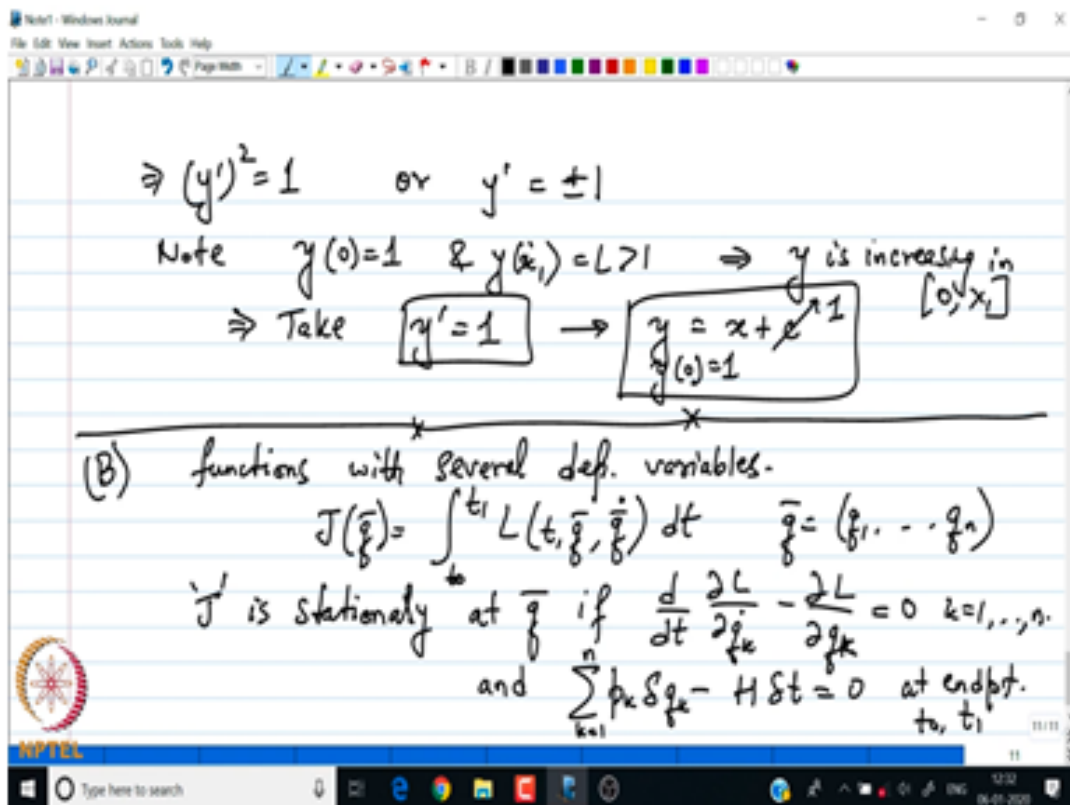 Note1 - Windows Journal
File Edit View Insert Actions Tools Help
Page Width
B I
⇒ (y')² = 1 or y' = ±1
Note y(0)=1 & y(x₁) = L>1 ⇒ y is increasing in [0, x₁]
⇒ Take y' = 1 → y = x + c 1
y(0)=1
(B) functions with several dep. variables.
J(q̄) = ∫_{t₀}^{t₁} L(t, q̄, q̄̇) dt q̄ = (q₁, ... qₙ)
'J' is stationary at q̄ if d/dt ∂L/∂q̇ₖ - ∂L/∂qₖ = 0 k=1,..,n.
and ∑_{k=1}^{n} pₖ δqₖ - H δt = 0 at endpt. t₀, t₁
11/11
NPTEL
11
Type here to search
ENG
12:32
06-01-2020